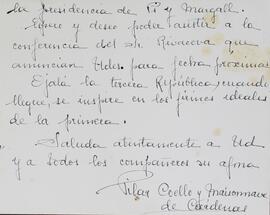 la presidencia de Pi y Margall.
Espero y deseo poder asistir a la
conferencia del Sr. que
anuncian Udes. para fecha próxima.
Ojalá la tercera República, cuando
llegue, se inspire en los firmes ideales
de la primera.
Saluda atentamente a Ud
y a todos los compañeros su afma
Pilar Coello y Maisonnave
de Cárdenas